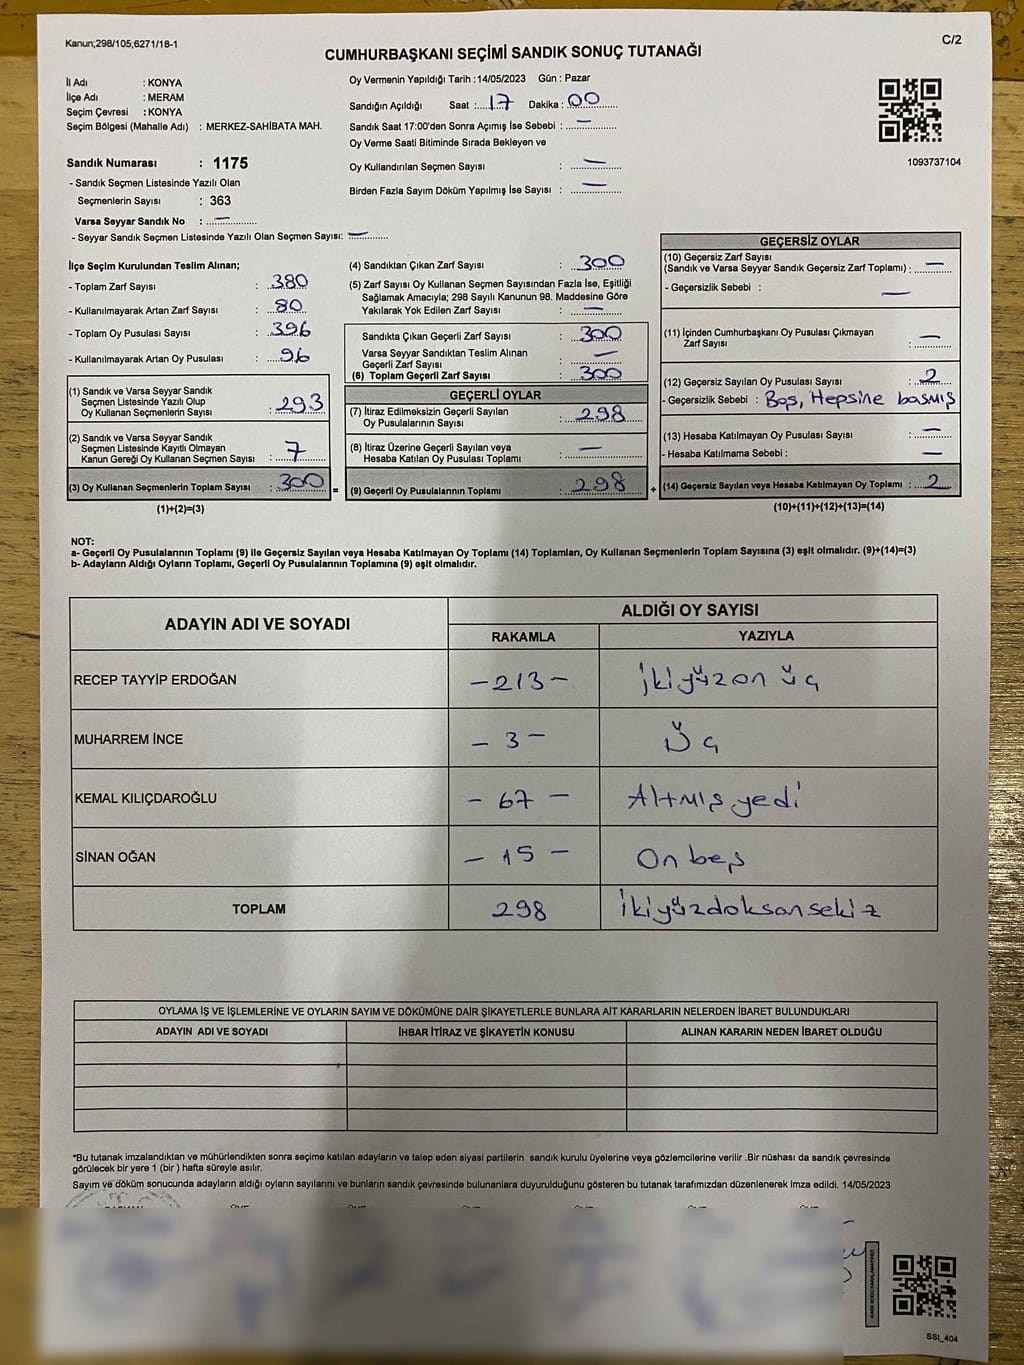 Kanun;298/105;6271/18-1
C/2
CUMHURBAŞKANI SEÇİMİ SANDIK SONUÇ TUTANAĞI
İl Adı : KONYA
İlçe Adı : MERAM
Seçim Çevresi : KONYA
Seçim Bölgesi (Mahalle Adı) : MERKEZ-SAHİBATA MAH.
Sandık Numarası : 1175
- Sandık Seçmen Listesinde Yazılı Olan
Seçmenlerin Sayısı : 363
Varsa Seyyar Sandık No : —
- Seyyar Sandık Seçmen Listesinde Yazılı Olan Seçmen Sayısı: —
Oy Vermenin Yapıldığı Tarih :14/05/2023 Gün : Pazar
Sandığın Açıldığı Saat : 17 Dakika : 00
Sandık Saat 17:00'den Sonra Açımış İse Sebebi : —
Oy Verme Saati Bitiminde Sırada Bekleyen ve
Oy Kullandırılan Seçmen Sayısı : —
Birden Fazla Sayım Döküm Yapılmış İse Sayısı : —
1093737104
İlçe Seçim Kurulundan Teslim Alınan;
- Toplam Zarf Sayısı : 380
- Kullanılmayarak Artan Zarf Sayısı : 80
- Toplam Oy Pusulası Sayısı : 396
- Kullanılmayarak Artan Oy Pusulası : 96
(1) Sandık ve Varsa Seyyar Sandık
Seçmen Listesinde Yazılı Olup
Oy Kullanan Seçmenlerin Sayısı : 293
(2) Sandık ve Varsa Seyyar Sandık
Seçmen Listesinde Kayıtlı Olmayan
Kanun Gereği Oy Kullanan Seçmen Sayısı : 7
(3) Oy Kullanan Seçmenlerin Toplam Sayısı : 300
(1)+(2)=(3)
(4) Sandıktan Çıkan Zarf Sayısı : 300
(5) Zarf Sayısı Oy Kullanan Seçmen Sayısından Fazla İse, Eşitliği
Sağlamak Amacıyla; 298 Sayılı Kanunun 98. Maddesine Göre
Yakılarak Yok Edilen Zarf Sayısı : —
Sandıkta Çıkan Geçerli Zarf Sayısı : 300
Varsa Seyyar Sandıktan Teslim Alınan
Geçerli Zarf Sayısı : —
(6) Toplam Geçerli Zarf Sayısı : 300
GEÇERLİ OYLAR
(7) İtiraz Edilmeksizin Geçerli Sayılan
Oy Pusulalarının Sayısı : 298
(8) İtiraz Üzerine Geçerli Sayılan veya
Hesaba Katılan Oy Pusulası Toplamı : —
= (9) Geçerli Oy Pusulalarının Toplamı : 298 +
GEÇERSİZ OYLAR
(10) Geçersiz Zarf Sayısı
(Sandık ve Varsa Seyyar Sandık Geçersiz Zarf Toplamı) : —
- Geçersizlik Sebebi : —
(11) İçinden Cumhurbaşkanı Oy Pusulası Çıkmayan
Zarf Sayısı : —
(12) Geçersiz Sayılan Oy Pusulası Sayısı : 2
- Geçersizlik Sebebi : Boş, Hepsine basmış
(13) Hesaba Katılmayan Oy Pusulası Sayısı : —
- Hesaba Katılmama Sebebi : —
(14) Geçersiz Sayılan veya Hesaba Katılmayan Oy Toplamı : 2
(10)+(11)+(12)+(13)=(14)
NOT:
a- Geçerli Oy Pusulalarının Toplamı (9) ile Geçersiz Sayılan veya Hesaba Katılmayan Oy Toplamı (14) Toplamları, Oy Kullanan Seçmenlerin Toplam Sayısına (3) eşit olmalıdır. (9)+(14)=(3)
b- Adayların Aldığı Oyların Toplamı, Geçerli Oy Pusulalarının Toplamına (9) eşit olmalıdır.
ADAYIN ADI VE SOYADI
ALDIĞI OY SAYISI
RAKAMLA YAZIYLA
RECEP TAYYİP ERDOĞAN -213- ikiyüzon üç
MUHARREM İNCE - 3 - Üç
KEMAL KILIÇDAROĞLU - 67 - Altmış yedi
SİNAN OĞAN - 15 - On beş
TOPLAM 298 ikiyüzdoksansekiz
OYLAMA İŞ VE İŞLEMLERİNE VE OYLARIN SAYIM VE DÖKÜMÜNE DAİR ŞİKAYETLERLE BUNLARA AİT KARARLARIN NELERDEN İBARET BULUNDUKLARI
ADAYIN ADI VE SOYADI İHBAR İTİRAZ VE ŞİKAYETİN KONUSU ALINAN KARARIN NEDEN İBARET OLDUĞU
*Bu tutanak imzalandıktan ve mühürlendikten sonra seçime katılan adayların ve talep eden siyasi partilerin sandık kurulu üyelerine veya gözlemcilerine verilir .Bir nüshası da sandık çevresinde
görülecek bir yere 1 (bir ) hafta süreyle asılır.
Sayım ve döküm sonucunda adayların aldığı oyların sayılarını ve bunların sandık çevresinde bulunanlara duyurulduğunu gösteren bu tutanak tarafımızdan düzenlenerek imza edildi. 14/05/2023
SSI_404